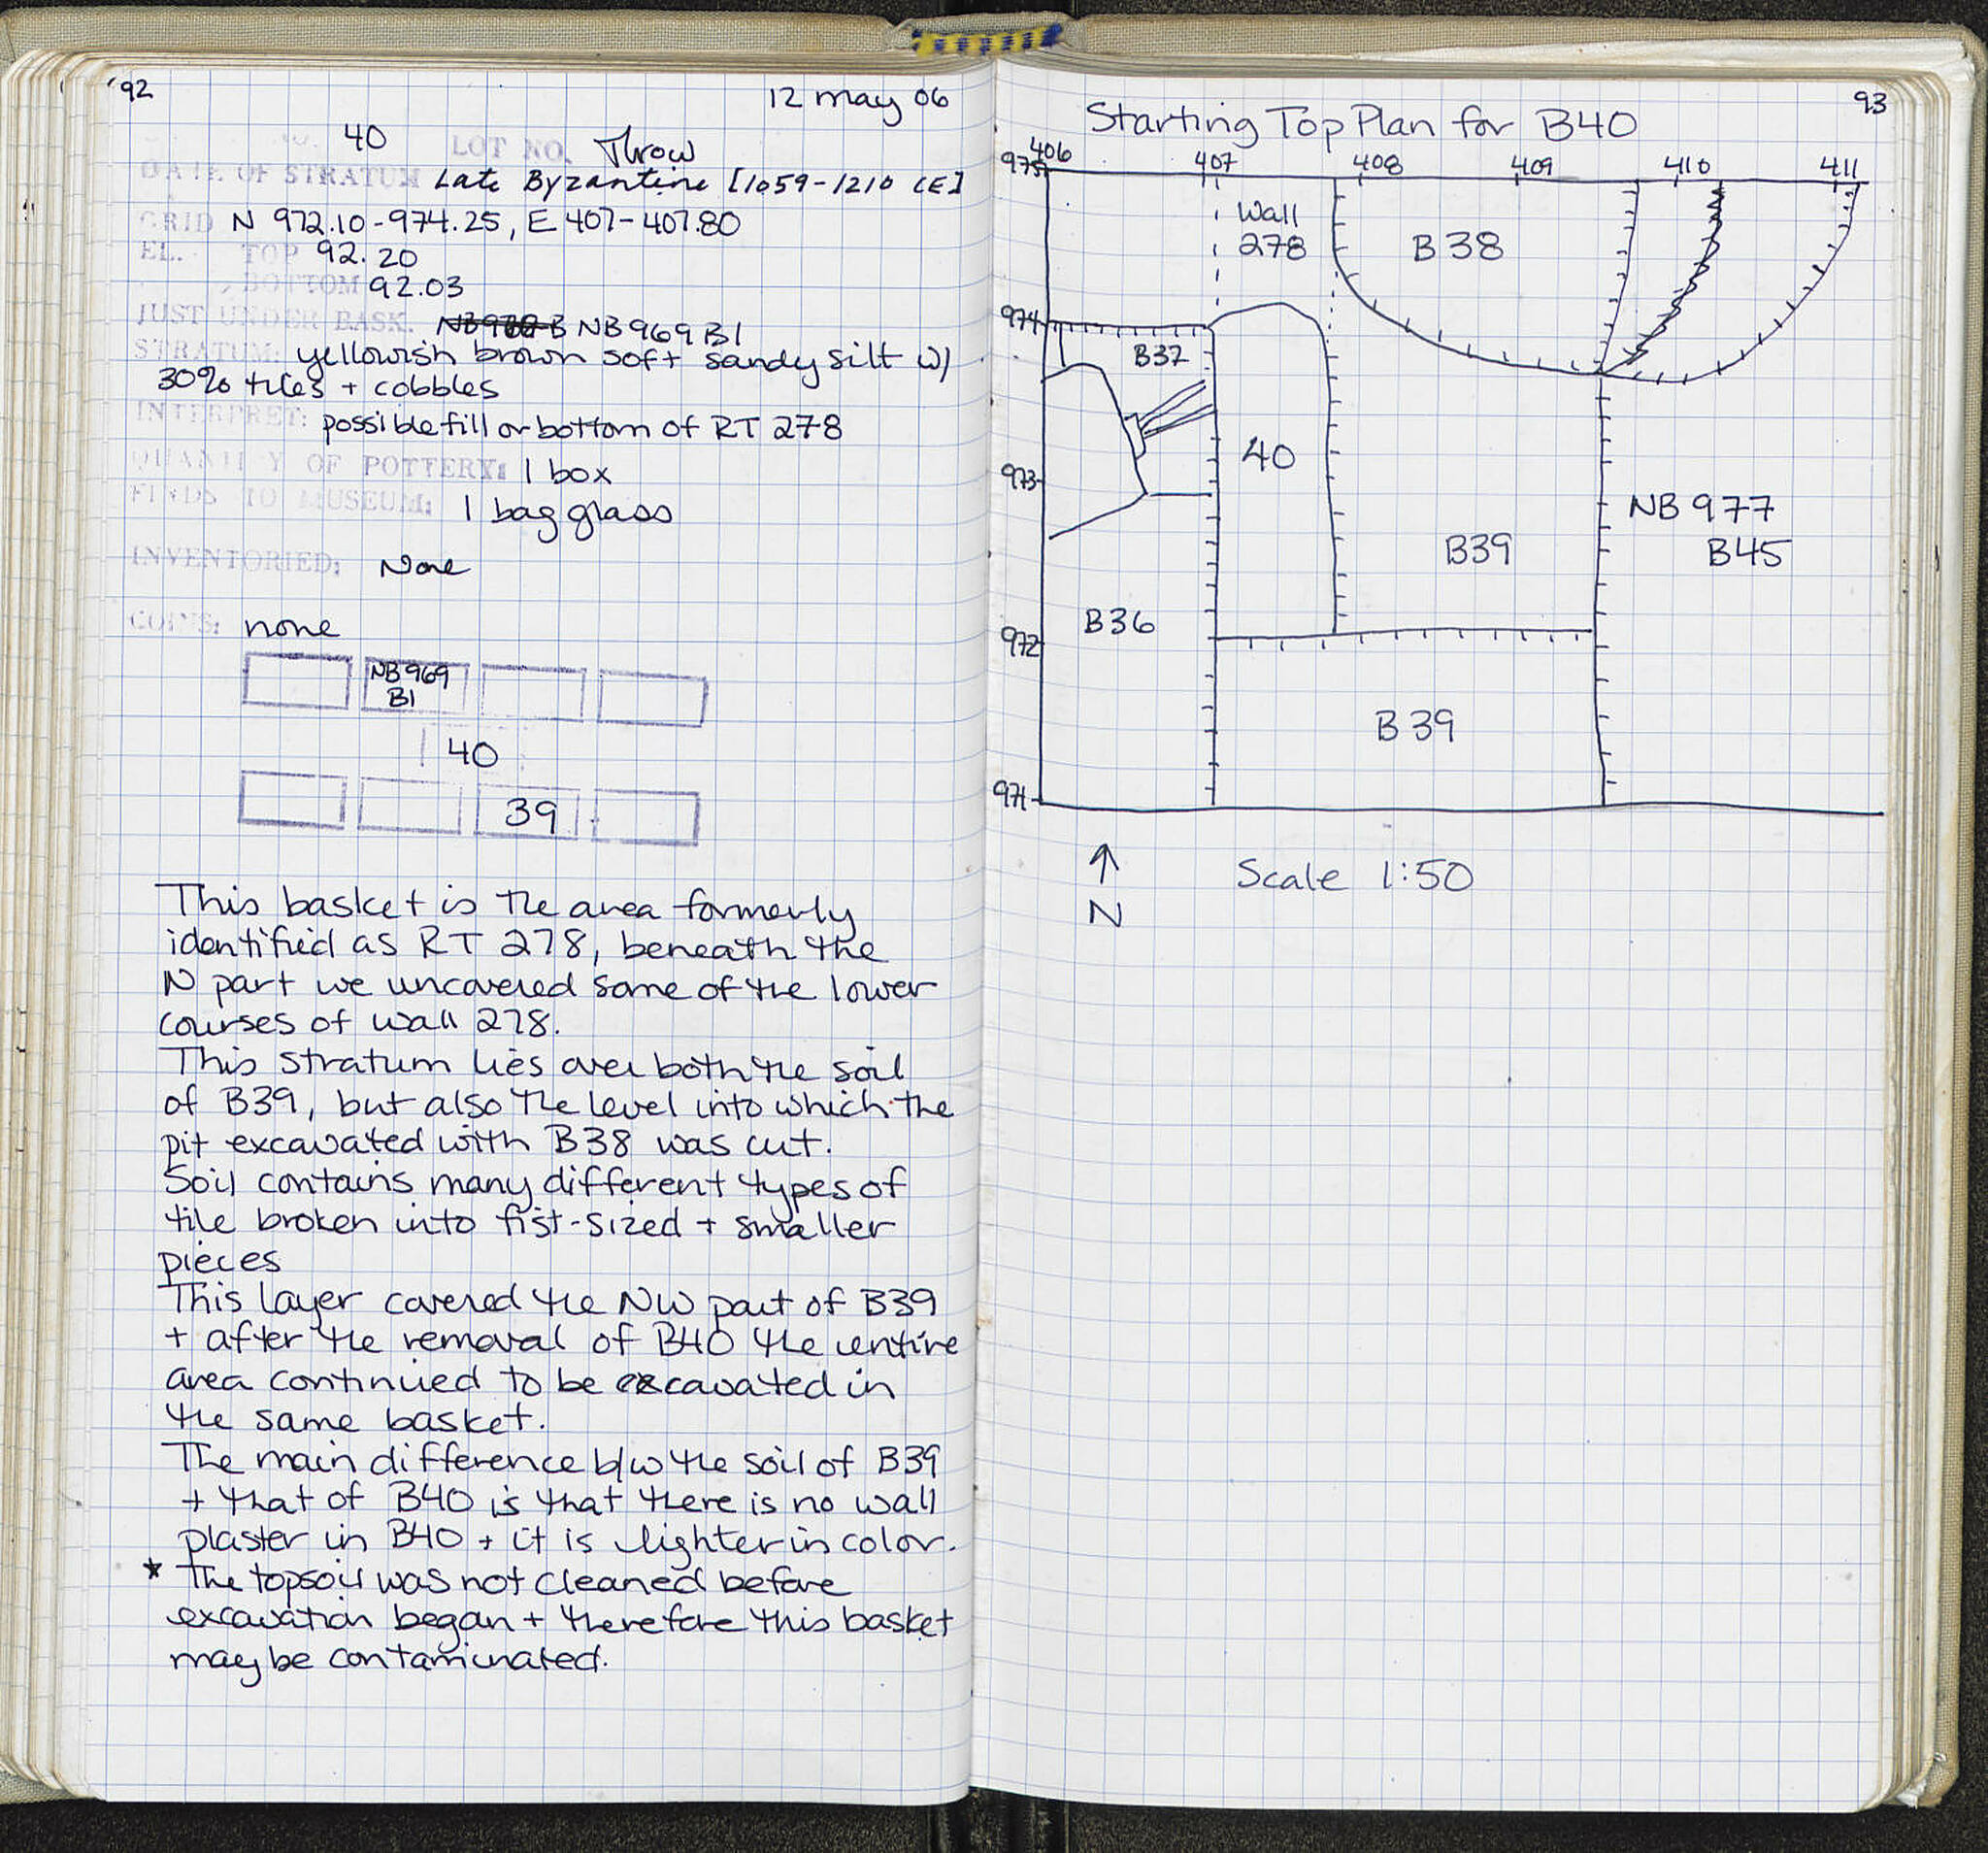 '92
12 may 06
40 LOT NO. Throw
DATE OF STRATUM Late Byzantine [1059-1210 CE]
GRID N 972.10-974.25, E 407-407.80
EL. TOP 92.20
BOTTOM 92.03
JUST UNDER BASK. NB969 B1
STRATUM: yellowish brown soft sandy silt w/
30% tiles + cobbles
INTERPRET: possible fill or bottom of RT 278
QUANTITY OF POTTERY: 1 box
FINDS TO MUSEUM: 1 bag glass
INVENTORIED: None
COINS: none
NB969
B1
40
39
This basket is the area formerly
identified as RT 278, beneath the
N part we uncovered some of the lower
courses of wall 278.
This stratum lies over both the soil
of B39, but also the level into which the
pit excavated with B38 was cut.
Soil contains many different types of
tile broken into fist-sized + smaller
pieces
This layer covered the NW part of B39
+ after the removal of B40 the entire
area continued to be excavated in
the same basket.
The main difference b/w the soil of B39
+ that of B40 is that there is no wall
plaster in B40 + it is lighter in color.
* The topsoil was not cleaned before
excavation began + therefore this basket
may be contaminated.
93
Starting Top Plan for B40
406 407 408 409 410 411
975
Wall
278
B38
974
B37
40
973
NB 977
B45
B39
B36
972
B39
971
↑
N
Scale 1:50